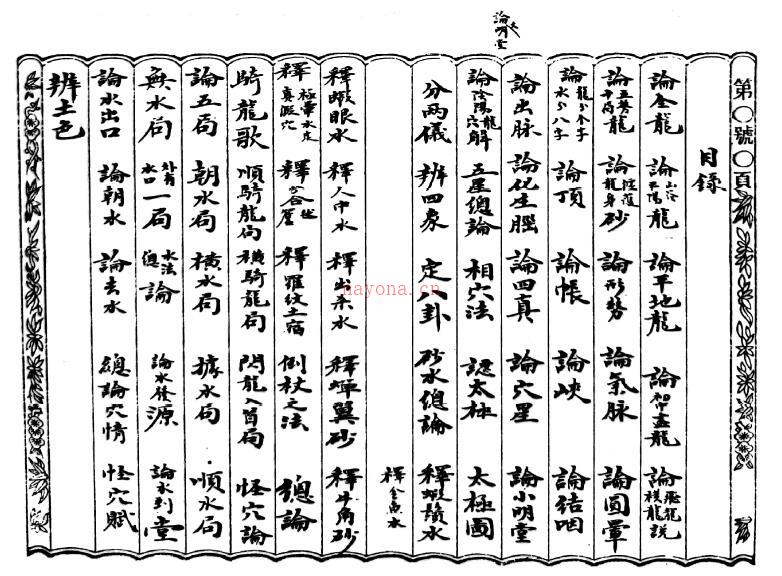 第〇號〇頁
目錄
論全龍 論山谷平陽龍 論平地龍 論初中盡龍 論飛龍模龍說
論五勢龍 論龍身砂 論形勢 論氣脉 論圓暈
論龍分个字水分八字 論頂 論帳 論峽 論結咽
論出脉 論化生腦 論四真 論穴星 論小明堂
論大明堂
論陰陽龍穴解 五星總論 相穴法 認太極 太極圖
分兩儀 辨四象 定八卦 砂水總論 釋蝦鬚水
釋金魚水
釋蝦眼水 釋人中水 釋水 釋蟬翼砂 釋牛角砂
釋極暈水底真假穴 釋分合 釋羅紋土宿 倒杖之法 總論
騎龍歌 順騎龍局 橫騎龍局 閃龍入首局 怪穴論
論五局 朝水局 橫水局 據水局 順水局
無水局 外有水口一局 水法總論 論水發源 論水到堂
論水出口 論朝水 論去水 總論穴情 怪穴賦
辨土色
nayona.cn